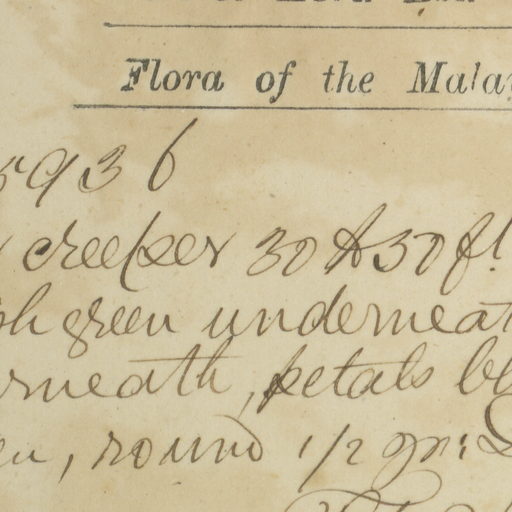 Flora of the Mala
5936
creeper 30 to 50 ft
green underneat
rneath, petals bl
en, round 1/2 in: